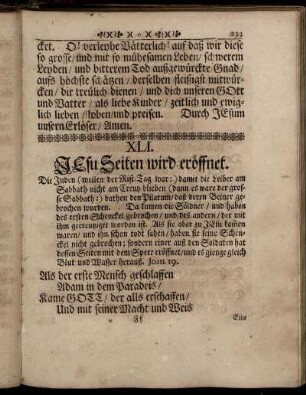 o 233
cket. O! verleyhe Vätterlich! auf daß wir diese
so grosse/ und mit so mühesamen Leben/ schwerem
Leyden/ und bitterem Tod außgewürckte Gnad/
aufs höchste schätzen/ derselben fleissigst mitwür-
cken/ dir treulich dienen/ und dich unseren GOtt
und Vatter/ als liebe Kinder/ zeitlich und ewig-
lich lieben/ loben/ und preisen. Durch JEsum
unsern Erlöser/ Amen.
XLI.
JEsu Seiten wird eröffnet.
Die Juden (weilen der Rüst-Tag war: damit die Leiber am
Sabbath nicht am Creutz blieben (dann es ware der gros-
se Sabbath:) bathen den Pilatum/ daß deren Beiner ge-
brochen wurden. Da kamen die Söldner/ und haben
des ersten Schenckel gebrochen/ und des andern/ der mit
ihm gecreutziget worden ist. Als sie aber zu JEsu kamen
waren/ und ihn schon tod sahen/ haben sie seine Schen-
ckel nicht gebrochen; sondern einer auß den Soldaten hat
dessen Seiten mit dem Speer eröffnet/ und es gienge gleich
Blut und Wasser herauß. Joan. 19.
Als der erste Mensch geschlaffen
Adam in dem Paradeis/
Kame GOTT/ der alls erschaffen/
Und mit seiner Macht und Weis
Ff Eine